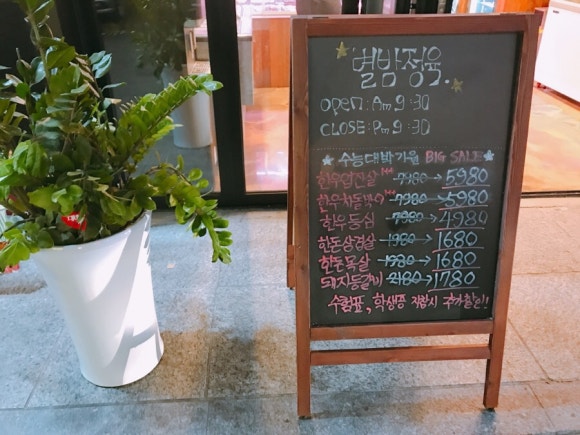 별밤정육.
OPEN : Am 9:30
CLOSE : Pm 9:30
수능대박기원 BIG SALE
한우업진살 7980 → 5980
한우차돌박이 7980 → 5980
한우등심 7980 → 4980
한돈삼겹살 1980 → 1680
한돈목살 1980 → 1680
돼지등갈비 2180 → 1780
수험표, 학생증 지참시 추가할인!!